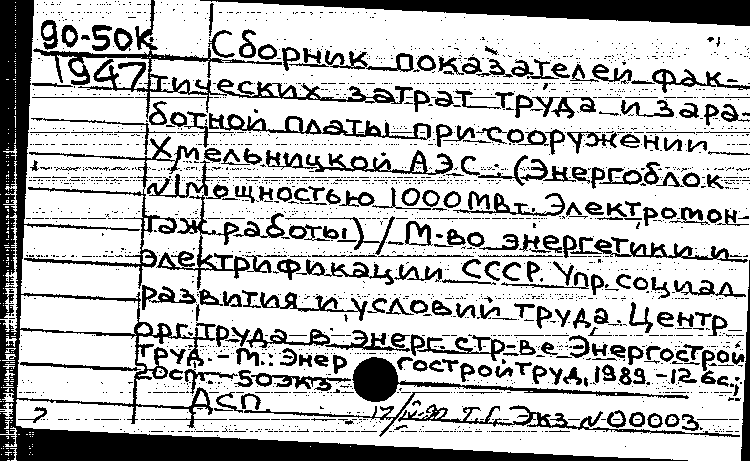 90-50К Сборник показателей фак-
1947 тических затрат труда и зара-
ботной платы при сооружении
Хмельницкой АЭС: (Энергоблок
№1 мощностью 1000 МВт. Электромон
таж. работы) / М-во энергетики и
электрификации СССР. Упр. социал
развития и условий труда. Центр
орг. труда в энерг. стр-ве Энергострой
труд. - М.: Энергостройтруд, 1989. - 126с.;
20см. - 50 экз.
ДСП.
12/IV-90 Т.Г. Экз №00003